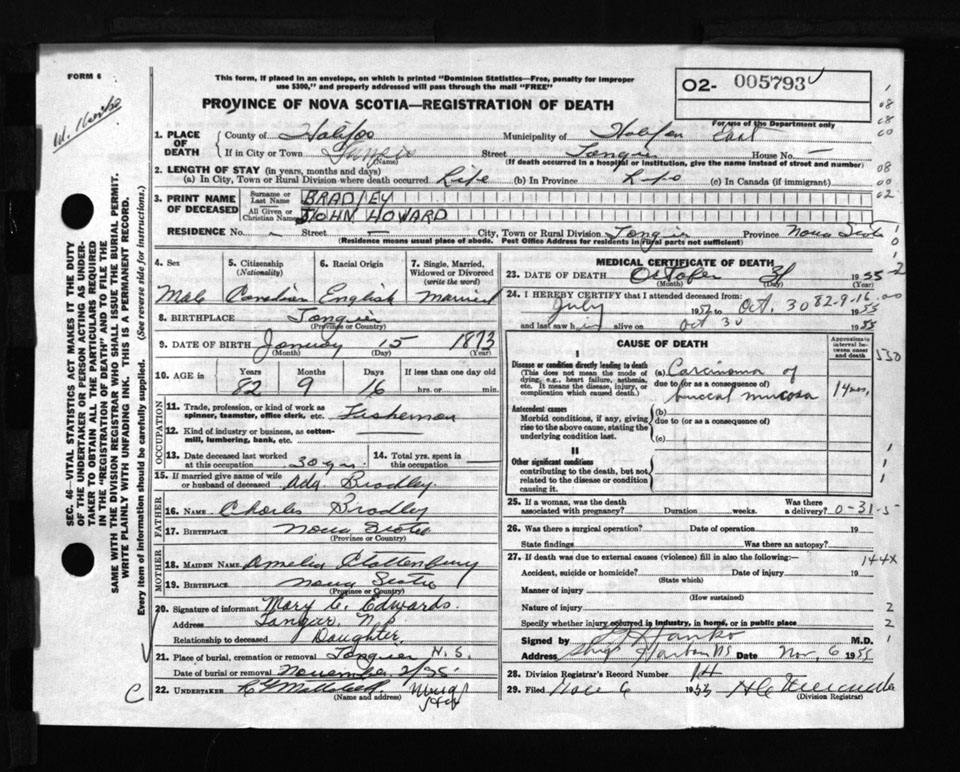 FORM 6
This form, if placed in an envelope, on which is printed "Dominion Statistics—Free, penalty for improper
use $300," and properly addressed will pass through the mail "FREE"
O2- 005793
For use of the Department only
PROVINCE OF NOVA SCOTIA—REGISTRATION OF DEATH
SEC. 46—VITAL STATISTICS ACT MAKES IT THE DUTY
OF THE UNDERTAKER OR PERSON ACTING AS UNDER-
TAKER TO OBTAIN ALL THE PARTICULARS REQUIRED
IN THE "REGISTRATION OF DEATH" AND TO FILE THE
SAME WITH THE DIVISION REGISTRAR WHO SHALL ISSUE THE BURIAL PERMIT.
WRITE PLAINLY WITH UNFADING INK. THIS IS A PERMANENT RECORD.
Every item of information should be carefully supplied. (See reverse side for instructions.)
1. PLACE OF DEATH
County of Halifax Municipality of Halifax East
If in City or Town Street Tangier House No. —
(Name) (If death occurred in a hospital or institution, give the name instead of street and number)
2. LENGTH OF STAY (in years, months and days)
(a) In City, Town or Rural Division where death occurred Life (b) In Province Life (c) In Canada (if immigrant)
3. PRINT NAME OF DECEASED
Surname or Last Name BRADLEY
All Given or Christian Names JOHN HOWARD
RESIDENCE No. — Street — City, Town or Rural Division Tangier Province Nova Scotia
(Residence means usual place of abode. Post Office Address for residents in rural parts not sufficient)
4. Sex Male
5. Citizenship (Nationality) Canadian
6. Racial Origin English
7. Single, Married, Widowed or Divorced (write the word) Married
8. BIRTHPLACE Tangier
(Province or Country)
9. DATE OF BIRTH January 15 1873
(Month) (Day) (Year)
10. AGE in Years 82 Months 9 Days 16 If less than one day old hrs. or min.
OCCUPATION
11. Trade, profession, or kind of work as spinner, teamster, office clerk, etc. Fisherman
12. Kind of industry or business, as cotton-mill, lumbering, bank, etc.
13. Date deceased last worked at this occupation 30 yrs.
14. Total yrs. spent in this occupation
15. If married give name of wife or husband of deceased Ada Bradley
FATHER
16. NAME Charles Bradley
17. BIRTHPLACE Nova Scotia
(Province or Country)
MOTHER
18. MAIDEN NAME Amelia Clattenburg
19. BIRTHPLACE Nova Scotia
(Province or Country)
20. Signature of informant Mary C. Edwards.
Address Tangier, N.S.
Relationship to deceased Daughter
21. Place of burial, cremation or removal Tangier N.S.
Date of burial or removal November 2/55
22. UNDERTAKER
(Name and address)
C
MEDICAL CERTIFICATE OF DEATH
23. DATE OF DEATH October 31 1955
(Month) (Day) (Year)
24. I HEREBY CERTIFY that I attended deceased from:
July 195 to Oct. 30 1955
82-9-16
and last saw h alive on Oct 30 1955
CAUSE OF DEATH
Approximate interval between onset and death
I
Disease or condition directly leading to death
(This does not mean the mode of dying, e.g., heart failure, asthenia, etc. It means the disease, injury, or complication which caused death.)
(a) Carcinoma of
due to (or as a consequence of) buccal mucosa
Antecedent causes
Morbid conditions, if any, giving rise to the above cause, stating the underlying condition last.
(b)
due to (or as a consequence of)
(c)
II
Other significant conditions
contributing to the death, but not related to the disease or condition causing it.
25. If a woman, was the death associated with pregnancy? Duration weeks. Was there a delivery? 0-31-5
26. Was there a surgical operation? Date of operation 19
State findings Was there an autopsy?
27. If death was due to external causes (violence) fill in also the following:— 144X
Accident, suicide or homicide? Date of injury 19
(State which)
Manner of injury
(How sustained)
Nature of injury
Specify whether injury occurred in industry, in home, or in public place
Signed by M.D.
Address Ship Harbour NS Nov. 6 1955
28. Division Registrar's Record Number 14
29. Filed Nov 6 195
(Division Registrar)